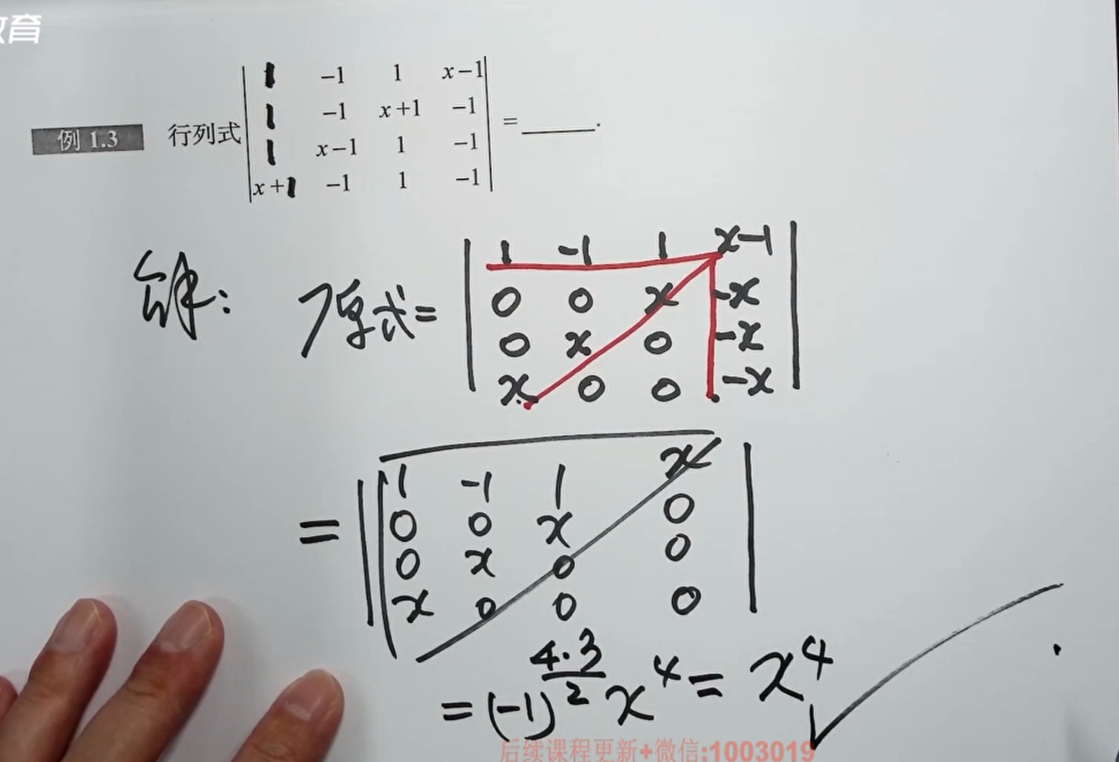 教育
例 1.3 行列式 | 1 -1 1 x-1 | = ____.
| 1 -1 x+1 -1 |
| 1 x-1 1 -1 |
| x+1 -1 1 -1 |
解: 原式= | 1 -1 1 x-1 |
| 0 0 x -x |
| 0 x 0 -x |
| x 0 0 -x |
= | 1 -1 1 x |
| 0 0 x 0 |
| 0 x 0 0 |
| x 0 0 0 |
= (-1)^{\frac{4·3}{2}} x^4 = x^4
后续课程更新+微信:1003019